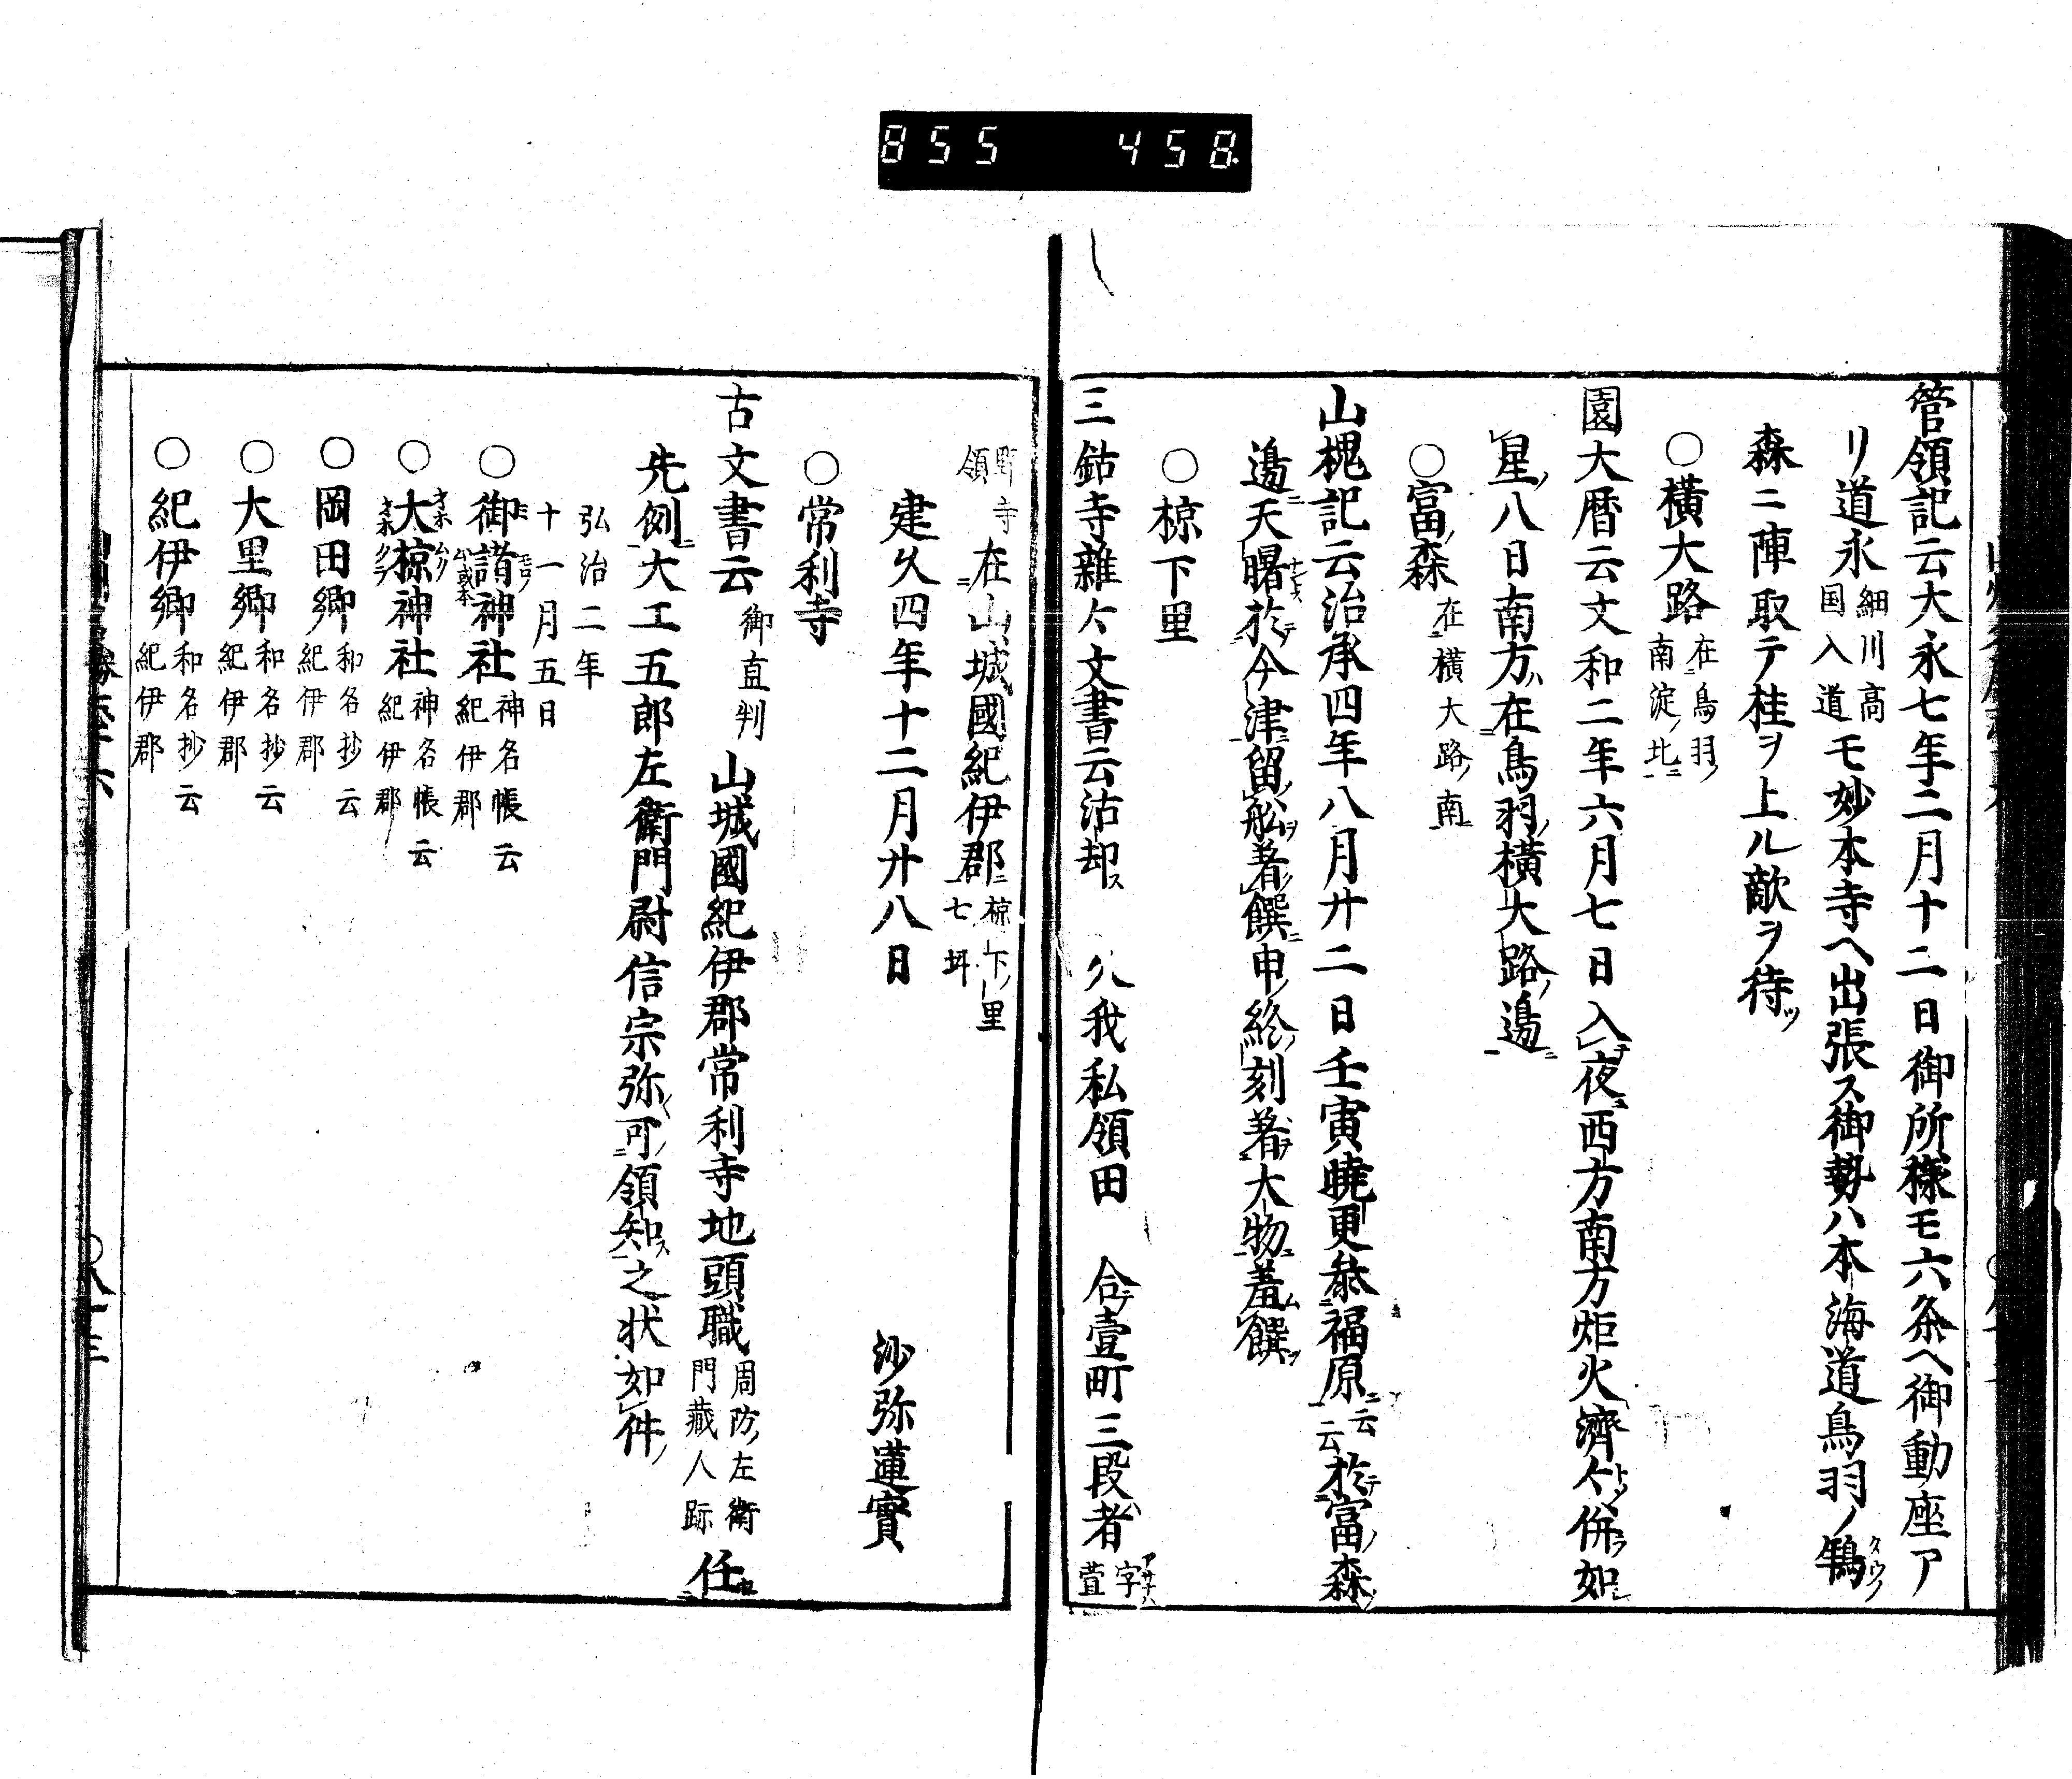 855 458
管領記云大永七年二月十二日御所様モ六条ヘ御動座ア
リ道永細川高国入道モ妙本寺ヘ出張ス御勢ハ本海道鳥羽ノ鵠クヽウノ
森ニ陣取テ桂ヲ上ル敵ヲ待ツ
○横大路在鳥羽ノ南淀ノ北ニ
園大暦云文和二年六月七日入夜西方南方炬火済々併如
星八日南方在鳥羽横大路邊
○富森在横大路ノ南ニ
山槐記云治承四年八月廿二日壬寅暁更参福原云云於富森
邊天曙於今津留舩著饌申終刻著大物羞饌
○椋下里
三鈷寺雑々文書云沽却ス 久我私領田 合壹町三段者字萱
野寺領在山城國紀伊郡椋下里七坪
建久四年十二月廿八日 沙弥蓮實
○常利寺
古文書云御直判山城國紀伊郡常利寺地頭職周防左衛門蔵人跡任
先例大工五郎左衛門尉信宗弥可領知之状如件
弘治二年
十一月五日
○御諸神社神名帳云紀伊郡
○大椋神社神名帳云紀伊郡
○岡田郷和名抄云紀伊郡
○大里郷和名抄云紀伊郡
○紀伊郷和名抄云紀伊郡